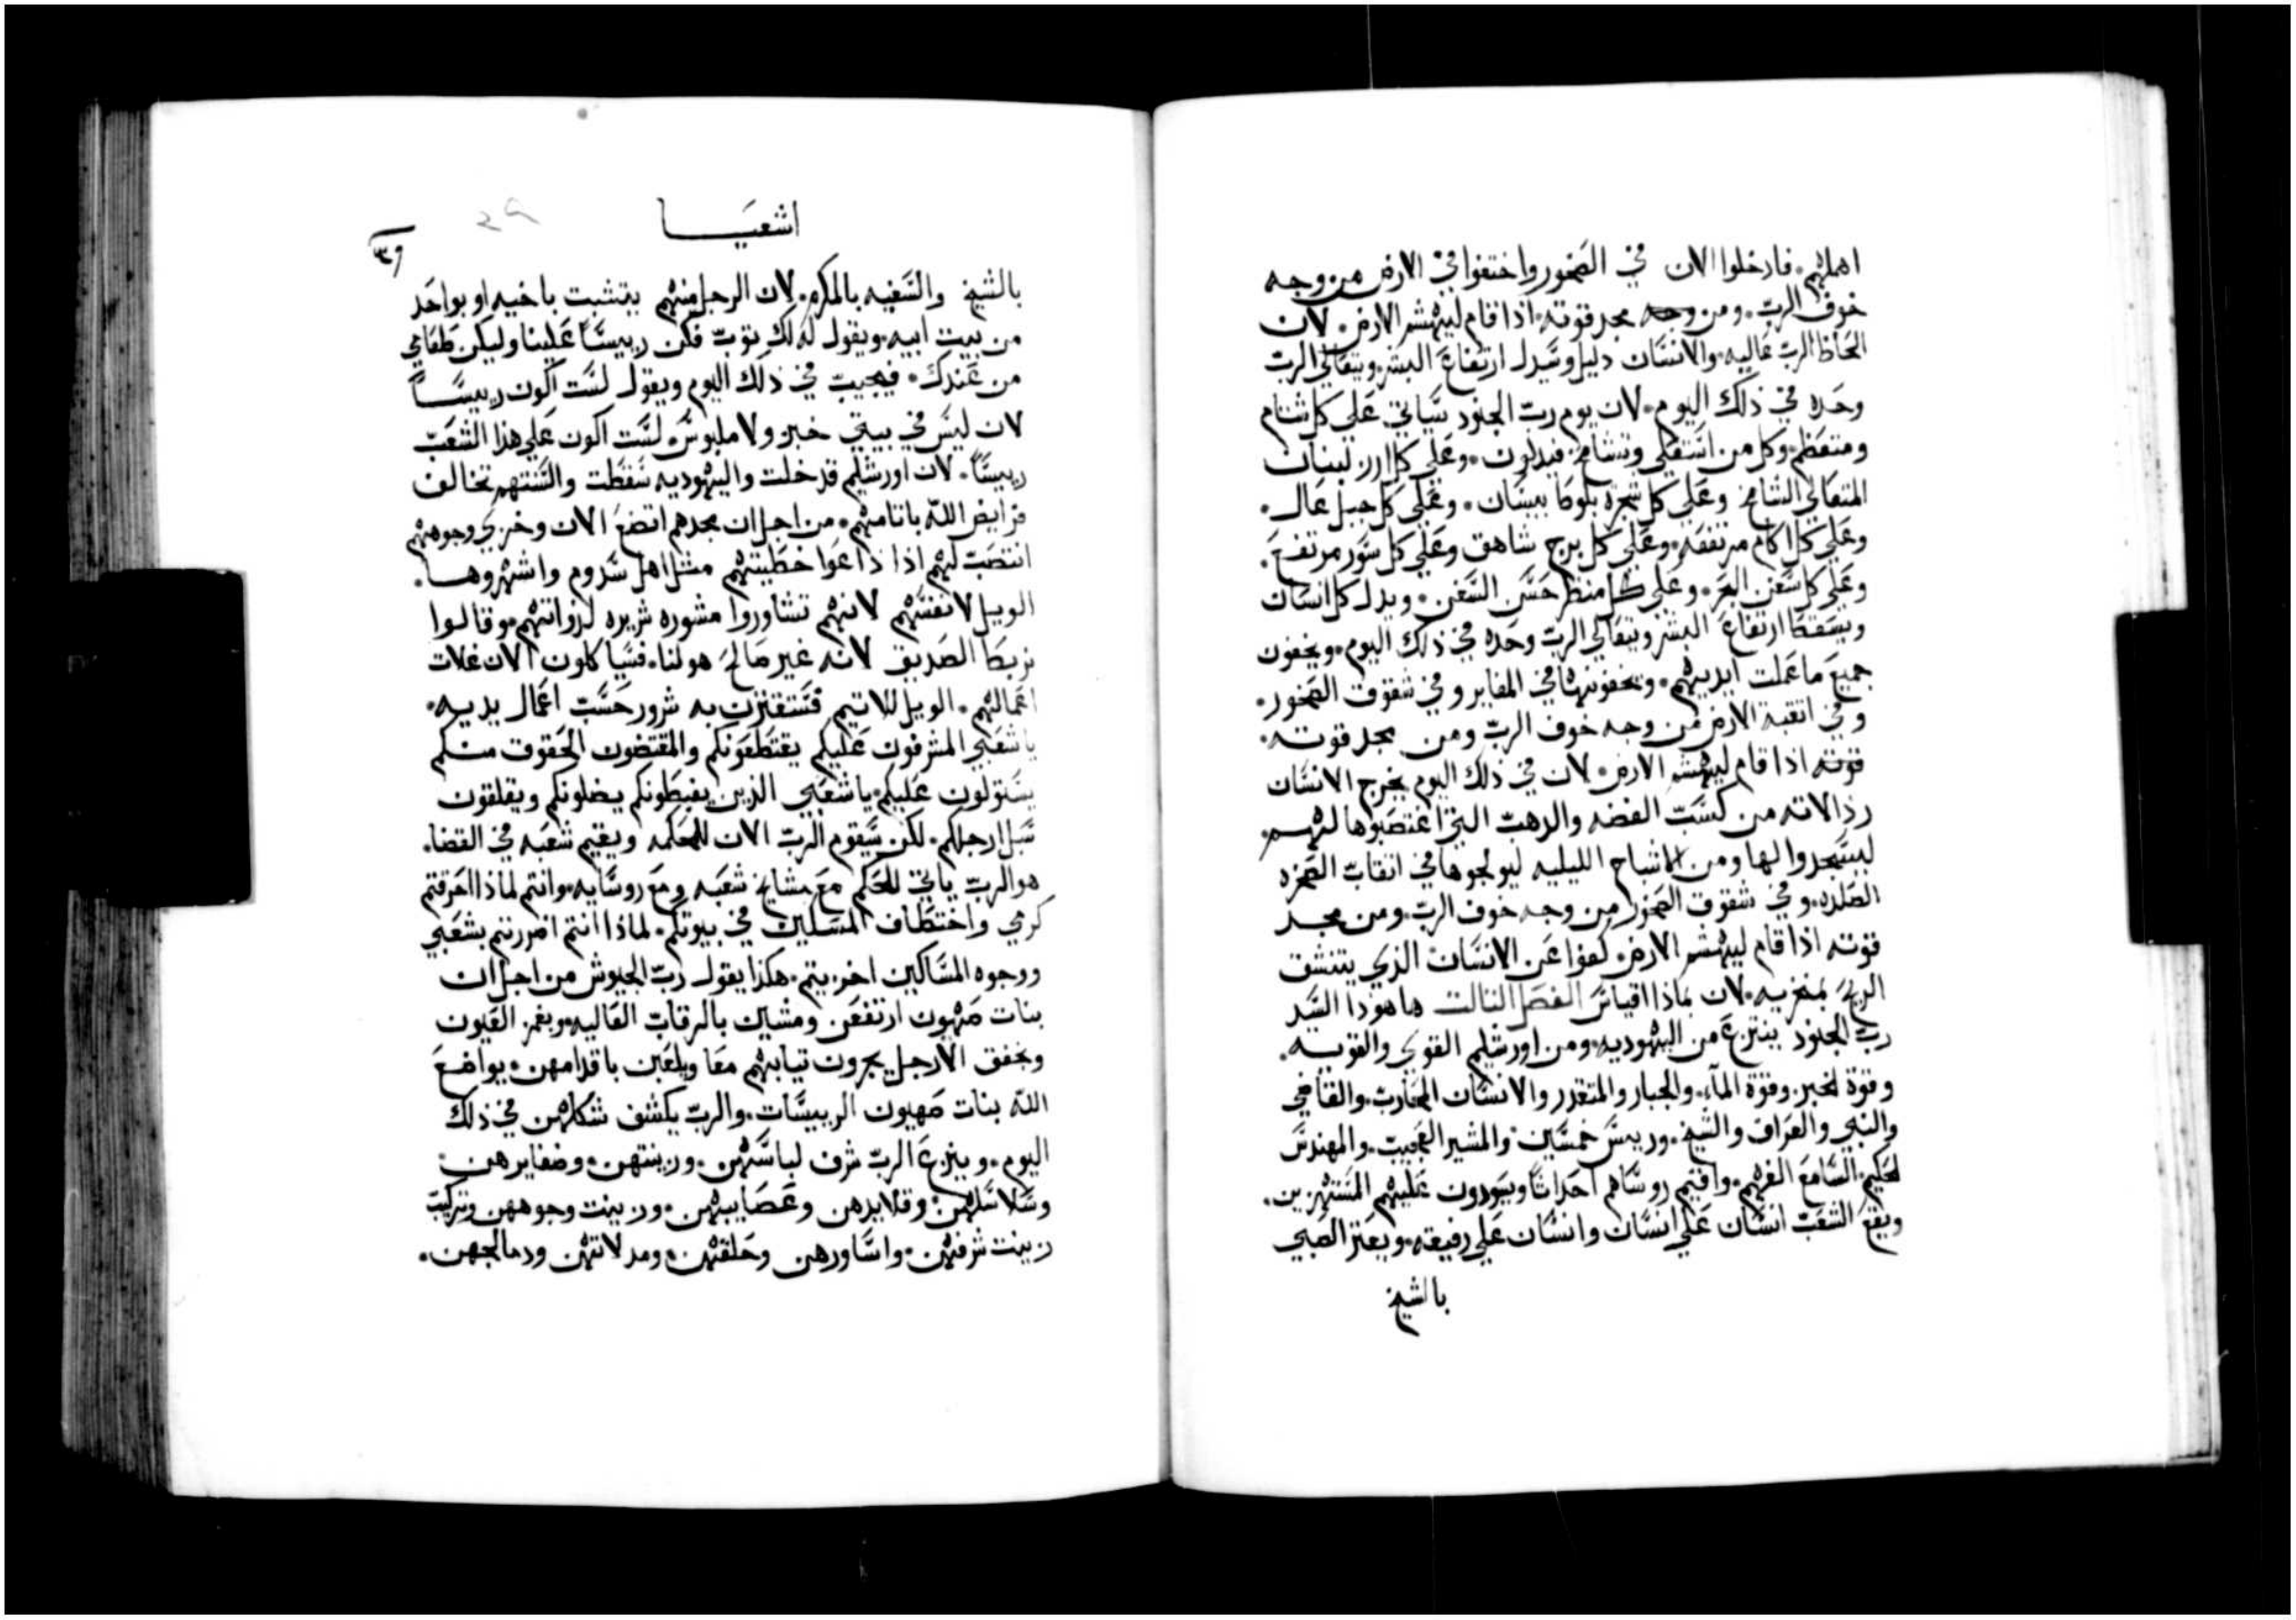 اهملهم. فادخلوا الان في الصخور واختفوا في الارض من وجه
خوف الربّ. ومن وجه مجد قوته. اذا قام ليهشم الارض. لان
الحاظ الربّ عاليه. والانسان دليل وسيدل ارتفاع البشر ويتعالى الربّ
وحده في ذلك اليوم. لان يوم ربّ الجنود سياتي على كل شتام
ومتعظم. وكل من استعلى وتشامخ فيدلون. وعلى كل ارز لبنان
المتعالي الشامخ وعلى كل شجرة بلوط بيسان. وعلى كل جبل عال.
وعلى كل اكام مرتفعه. وعلى كل برج شاهق وعلى كل سور مرتفع.
وعلى كل سفن البحر. وعلى كل منظر حسن السفن. ويدل كل انسان
ويسقط ارتفاع البشر ويتعالي الربّ وحده في ذلك اليوم. ويخفون
جميع ما عملت ايديهم. ويخفونها في المغاير وفي شقوق الصخور.
وفي اثقبة الارض من وجه خوف الربّ ومن مجد قوته.
قوته اذا قام ليهشم الارض. لان في ذلك اليوم يخرج الانسان
رذالاته من كسب الفضه والدهب التي اغتصبوها لهم.
ليسجدوا لها ومن الاشباح الليليه ليولجوها في انقاب الصخره
الصلده. وفي شقوق الصخور من وجه خوف الربّ. ومن مجد
قوته اذا قام ليهشم الارض. كفوا عن الانسان الذي يتنشق
الريح بمنخريه. لان بماذا اقياس الفصل الثالث هاهوذا السيد
ربّ الجنود ينتزع من اليهوديه. ومن اورشليم القوي والقويه.
وقوة الخبز. وقوة المآء. والجبار والمتقدر والانسان المحارب. والقاضي
والنبي والعراف والشيخ. ورييس خمسين. والمشير العجيب. والمهندس
الحكيم. السامع الفهم. واقيم روساهم احداثا ويسودون عليهم المستهزين.
ويقع الشعب انسان علي انسان وانسان علي رفيقه. ويعتز الصبي
بالشيخ
اشعيا
٣٩
بالشيخ والسفيه بالمكرم. لان الرجل منهم يتشبت باخيه او بواحد
من بيت ابيه. ويقول له لك توب فكن رييسا علينا وليكن طعامي
من عندك. فيجيب في ذلك اليوم ويقول لست اكون رييسا
لان ليس في بيتي خبز ولا ملبوس. لست اكون علي هذا الشعب
رييسا. لان اورشليم قد خلت واليهوديه سقطت والسنتهم تخالف
فرايض الله باثامهم. من اجل ان مجدهم اتضع الان وخزي وجوههم
انتصب لهم اذا ذاعوا خطيتهم مثل اهل سدوم واشهروها.
الويل لانفسهم لانهم تشاوروا مشوره شريره لذواتهم. وقالوا
نربط الصديق لانه غير صالح هو لنا. فسياكلون الان غلات
اعمالهم. الويل للاتيم فستقترن به شرور حسب اعمال يديه.
ياشعبي المشرفون عليكم يقتطفونكم والمقتضون الحقوق منكم
يستولون عليكم. ياشعبي الذين يغبطونكم يضلونكم ويقلقون
سبل ارجلكم. لكن سيقوم الربّ الان للمحكمه ويقيم شعبه في القضا.
هو الربّ ياتي للحكم مع مشايخ شعبه ومع روسايه. وانتم لماذا احرقتم
كرمي واختطاف المسلكين في بيوتكم. لماذا انتم اضررتم بشعبي
ووجوه المساكين اخزيتم. هكذا يقول ربّ الجيوش من اجل ان
بنات صهيون ارتفعن ومشين بالرقاب العاليه. وبغمز العيون
وبخفق الارجل يجرون تيابهم معا ويلعبن باقدامهن. يواضع
الله بنات صهيون الرييسات. والربّ يكشف شكلهن في ذلك
اليوم. وينزع الربّ شرف لباسهن. وزينتهن. وضفايرهن
وسلاسلهن. وقلايدهن وعصايبهن. وزينت وجوههن وتركيب
زينت شرفهن. واساورهن وحلقهن. ومدلاتهن ودمالجهن.